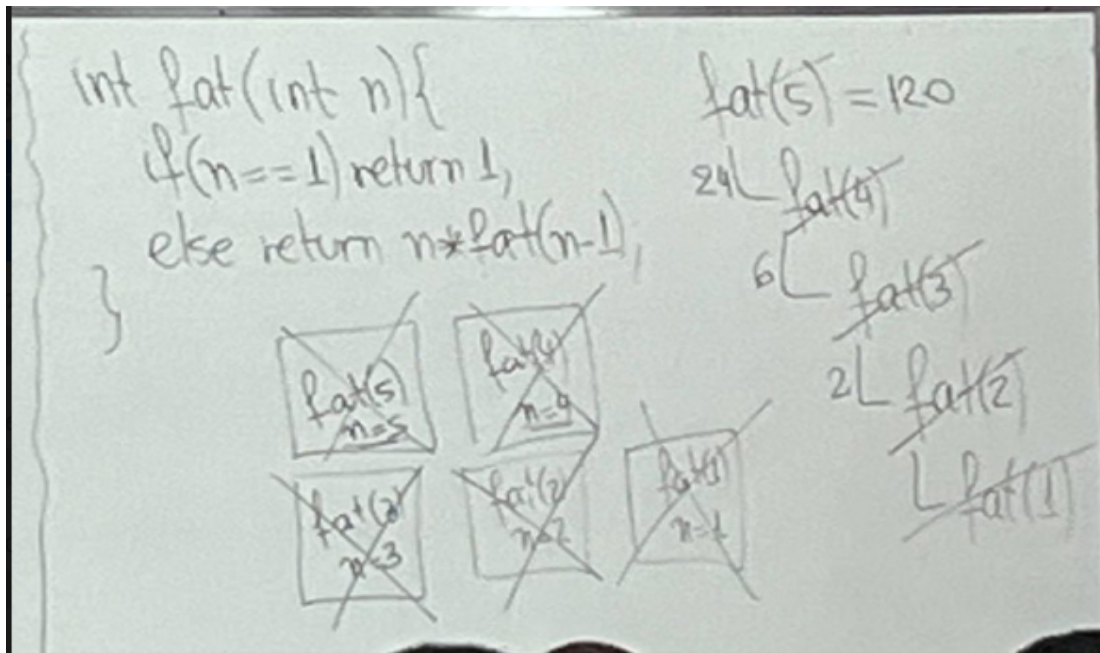 int fat(int n){
if(n==1) return 1;
else return n*fat(n-1);
}
fat(5) = 120
24 fat(4)
6 fat(3)
2 fat(2)
fat(1)
fat(5)
n=5
fat(4)
n=4
fat(3)
n=3
fat(2)
n=2
fat(1)
n=1